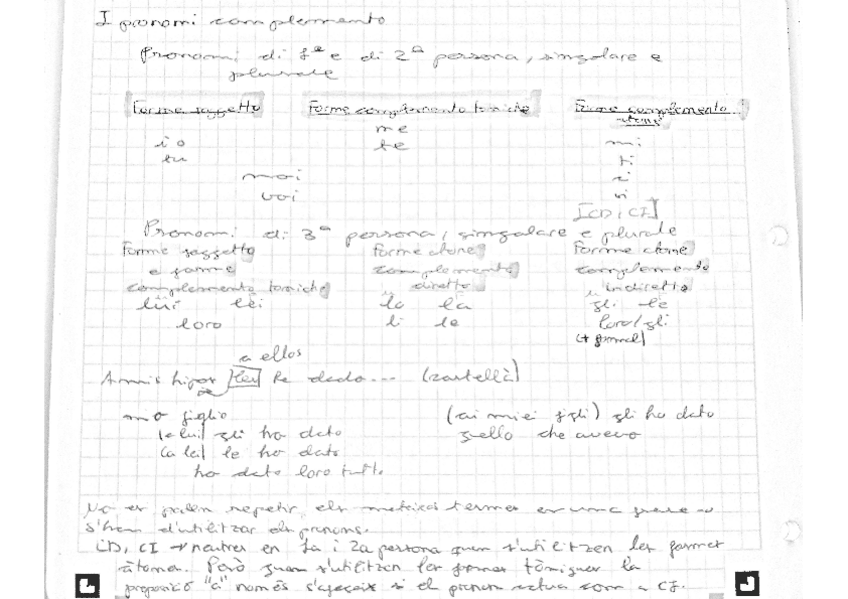 I pronomi complemento
Pronomi di 1ª e di 2ª persona, singolare e
plurale
Forme soggetto Forme complemento toniche Forme complemento
atone
me
io te mi
tu ti
noi ci
voi vi
[CD, CI]
Pronomi di 3ª persona, singolare e plurale
Forme soggetto Forme atone Forme atone
e forme complemento complemento
complemento toniche diretto indiretto
lui lei lo la gli le
loro li le loro/gli
(+ formal)
a ellos
A mis hijos les he dado... (castellà)
mio figlio (ai miei figli) gli ho dato
(a lui) gli ho dato quello che avevo
(a lei) le ho dato
ho dato loro tutto
No es poden repetir els mateixos termes en una frase
s'han d'utilitzar els pronoms.
CD, CI → neutres en 1a i 2a persona quan s'utilitzen les formes
àtones. Però quan s'utilitzen les formes tòniques la
preposició "a" només s'afegeix si el pronom actua com a CI.